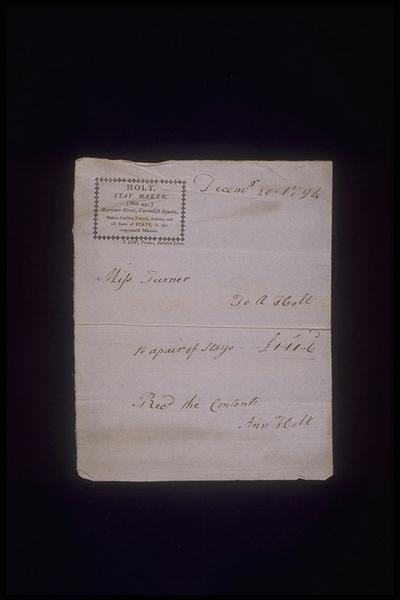 HOLT,
STAY MAKER,
(No. 45,)
Mortimer Street, Cavendish Square,
Makes Corsets, French, Italian, and
all Sorts of STAYS, in the
compleatest Manner.
Printer,
Decemr 20 1794
Miſs Turner
To A Holt
to a pair of Stays - £1-11-6
Recd the Contents
Ann Holt